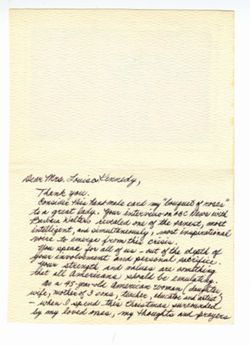 Dear Mrs. Louisa Kennedy,
Thank you.
Consider this hand-made card my "bouquet of roses"
to a great lady. Your interview on ABC News with
Barbara Walters revealed one of the sanest, most
intelligent, and simultaneously, most inspirational
voice to emerge from this crisis.
You speak for all of us - out of the depth of
your involvement and personal sacrifice.
Your strength and values are something
that all Americans should be emulating.
As a 45-year-old American woman (daughter,
wife, mother of 3 sons, teacher, and artist)
- when I spend this Christmas surrounded
by my loved ones, my thoughts and prayers